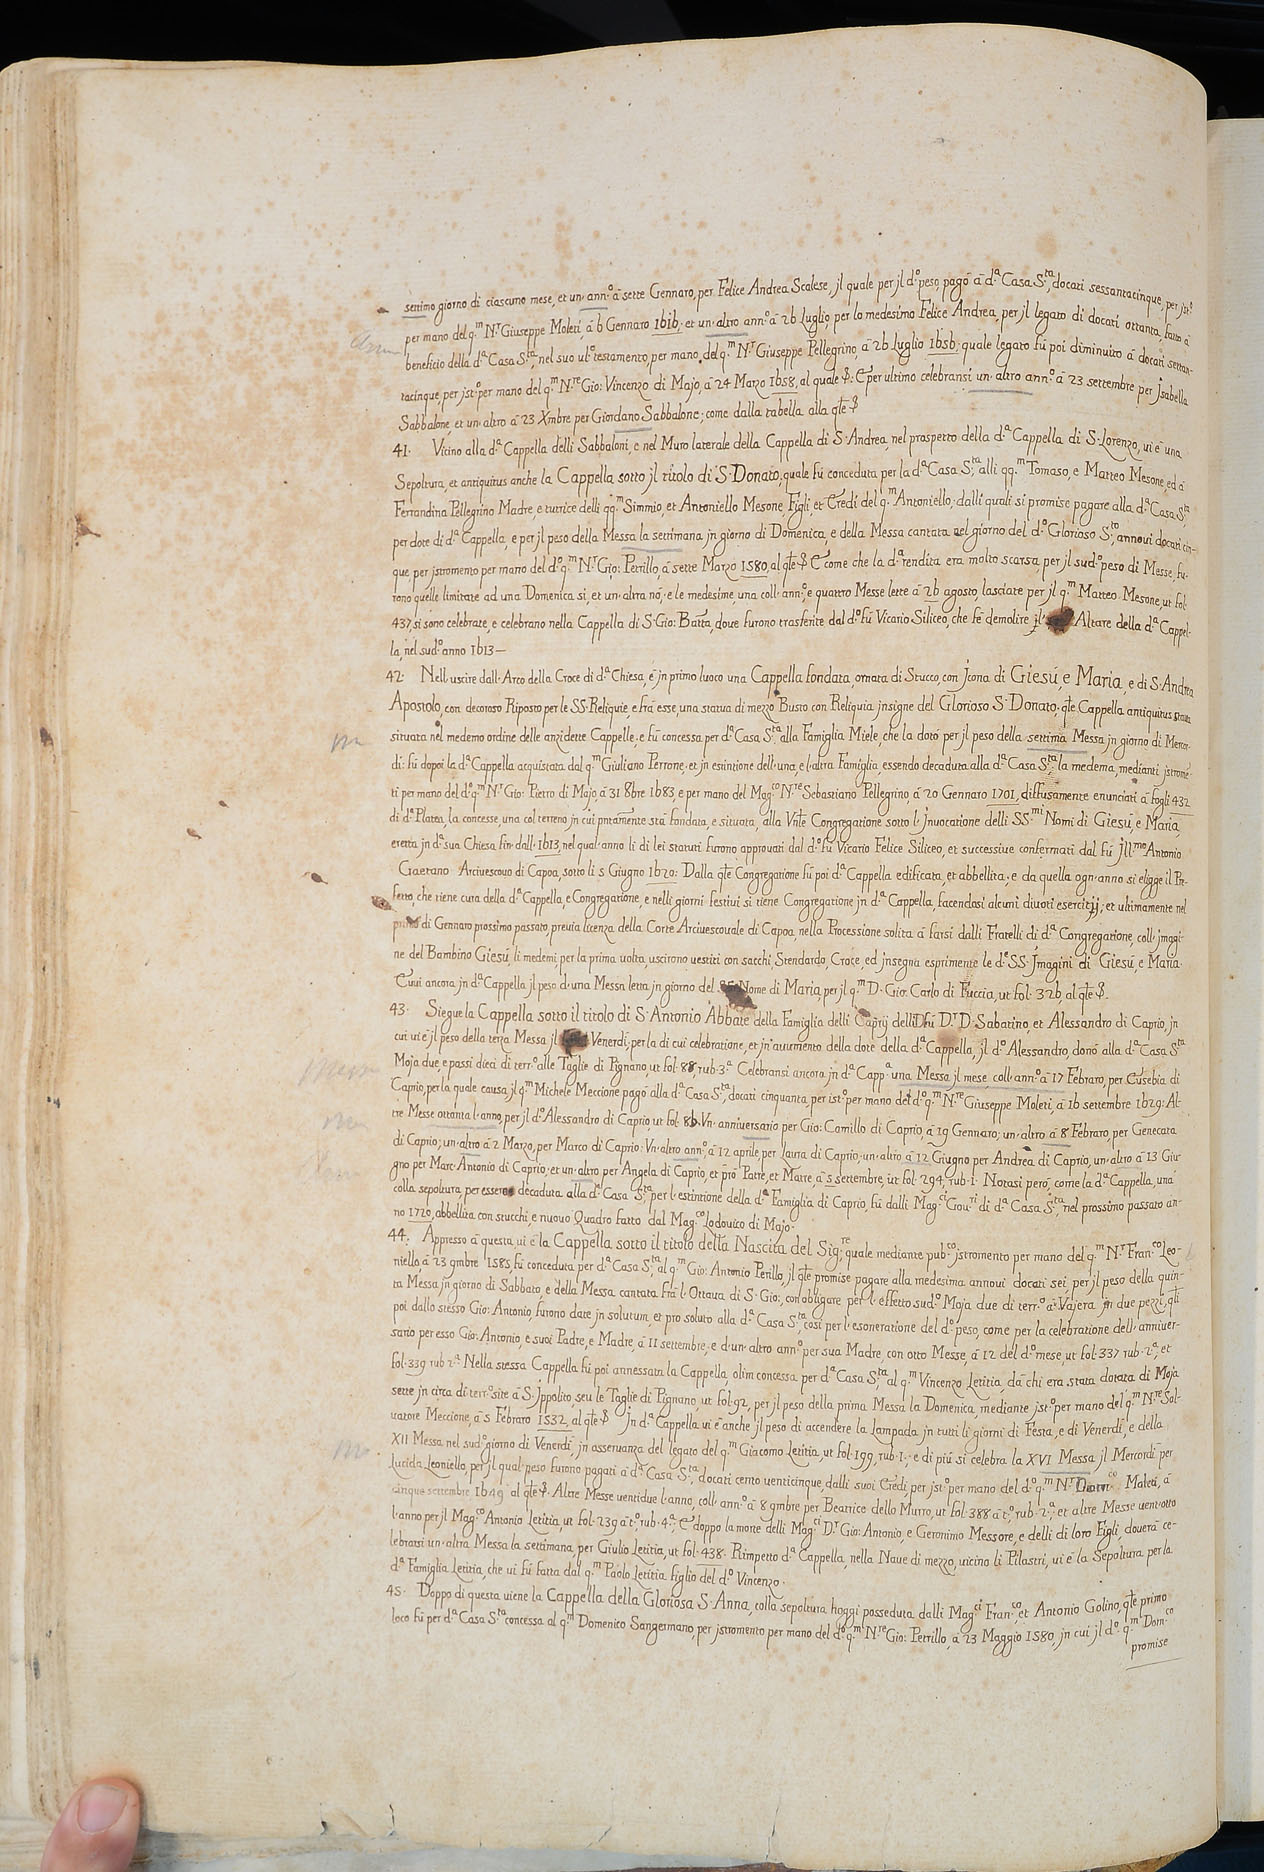 settimo giorno di ciascuno mese, et un' ann.º à sette Gennaro, per Felice Andrea Scalese, jl quale per jl d.º peso pagò à d.ª Casa S.ta docati sessantacinque, per jst.º
per mano del q.m N.r Giuseppe Moleti, à 6 Gennaro 1616; et un' altro ann.º à 26 Luglio, per lo medesimo Felice Andrea, per jl legato di docati ottanta, fatto à
beneficio della d.ª Casa S.ta, nel suo ult.º testamento, per mano del q.m N.r Giuseppe Pellegrino, à 26 Luglio 1656; quale legato fù poi diminuito à docati settan-
tacinque, per jst.º per mano del q.m N.re Gio: Vincenzo di Majo, à 24 Marzo 1658, al quale &: E per ultimo celebransi un' altro ann.º à 23 settembre per Jsabella
Sabbalone, et un' altro à 23 Xmbre per Giordano Sabbalone; come dalla tabella alla qle &
41. Vicino alla d.ª Cappella delli Sabbaloni, e nel Muro laterale della Cappella di S. Andrea, nel prospetto della d.ª Cappella di S. Lorenzo, ui è una
Sepoltura, et antiquitus anche la Cappella sotto jl titolo di S. Donato, quale fù conceduta per la d.ª Casa S.ta alli qq.m Tomaso, e Matteo Mesone, ed à
Ferrandina Pellegrino Madre, e tutrice delli qq.m Simmio, et Antoniello Mesone Figli, et Eredi del q.m Antoniello; dalli quali si promise pagare alla d.ª Casa S.ta
per dote di d.ª Cappella, e per jl peso della Messa la settimana jn giorno di Domenica, e della Messa cantata nel giorno del d.º Glorioso S.to, annoui docati cin-
que, per jstromento per mano del d.º q.m N.r Gio: Petrillo, à sette Marzo 1580, al qle & E come che la d.ª rendita era molto scarsa, per jl sud.º peso di Messe, fu-
rono quelle limitate ad una Domenica sì, et un' altra nò; e le medesime, una coll' ann.º, e quattro Messe lette à 26 agosto, lasciate per jl q.m Matteo Mesone, ut fol.
437, si sono celebrate, e celebrano nella Cappella di S. Gio: Batta, doue furono trasferite dal d.º fù Vicario Siliceo, che fè demolire jl Altare della d.ª Cappel-
la, nel sud.º anno 1613—
42. Nell' uscire dall' Arco della Croce di d.ª Chiesa, è jn primo luoco una Cappella fondata, ornata di Stucco, con Jcona di Giesù, e Maria, e di S. Andrea
Apostolo, con decoroso Riposto per le SS. Reliquie, e frà esse, una statua di mezzo Busto con Reliquia jnsigne del Glorioso S. Donato; qle Cappella antiquitus
situata nel medemo ordine delle anzidette Cappelle, e fù concessa per d.ª Casa S.ta alla Famiglia Miele, che la dotò per jl peso della settima Messa jn giorno di Merco-
dì: fù dopoi la d.ª Cappella acquistata dal q.m Giuliano Perrone, et jn estintione dell' una, e l' altra Famiglia, essendo decaduta alla d.ª Casa S.ta la medema, medianti jstrome-
ti per mano del d.º q.m N.r Gio: Pietro di Majo, à 31 8bre 1683, e per mano del Mag.co N.re Sebastiano Pellegrino, à 20 Gennaro 1701, diffusamente enunciati à fogli 432
di d.ª Platea, la concesse, una col terreno jn cui pntamente stà fondata, e situata, alla Vnle Congregatione sotto l' Jnuocatione delli SS.mi Nomi di Giesù, e Maria,
eretta jn d.ª sua Chiesa fin dall' 1613, nel qual' anno li di lei statuti furono approuati dal d.º fù Vicario Felice Siliceo, et successiue confermati dal fù Jll.mo Antonio
Gaetano Arciuescouo di Capoa, sotto li 5 Giugno 1620: Dalla qle Congregatione fù poi d.ª Cappella edificata, et abbellita; e da quella ogn' anno si eligge il Pre-
fetto, che tiene cura della d.ª Cappella, e Congregatione, e nelli giorni festiui si tiene Congregatione jn d.ª Cappella, facendosi alcuni diuoti esercitij; et ultimamente nel
primo di Gennaro prossimo passato, preuia licenza della Corte Arciuescouale di Capoa, nella Processione solita à farsi dalli Fratelli di d.ª Congregatione, coll' jmagi-
ne del Bambino Giesù, li medemi, per la prima uolta, uscirono uestiti con sacchi, Stendardo, Croce, ed jnsegna esprimente le d.e SS. Jmagini di Giesù, e Maria.
Euui ancora jn d.ª Cappella jl peso d' una Messa letta jn giorno del Nome di Maria, per jl q.m D. Gio: Carlo di Fuccia, ut fol. 326, al qle &.
43. Siegue la Cappella sotto il titolo di S. Antonio Abbate della Famiglia delli Caprij delli Dhi D.r D. Sabatino, et Alessandro di Caprio, jn
cui ui è jl peso della terza Messa jl Venerdì, per la di cui celebratione, et jn aumento della dote della d.ª Cappella, jl d.º Alessandro, donò alla d.ª Casa S.ta
Moja due e passi dieci di terr.º alle Taglie di Pignano, ut fol. 88, rub. 3.ª Celebransi ancora jn d.ª Capp.ª una Messa jl mese, coll' ann.º à 17 Febraro, per Eusebia di
Caprio, per la quale causa, jl q.m Michele Meccione pagò alla d.ª Casa S.ta, docati cinquanta, per ist.º per mano del d.º q.m N.re Giuseppe Moleti, à 16 settembre 1629: Al-
tre Messe ottanta l' anno, per jl d.º Alessandro di Caprio, ut fol. 86. Vn' anniuersario per Gio: Camillo di Caprio, à 19 Gennaro; un' altro à 8 Febraro, per Genecata
di Caprio; un' altro à 2 Marzo, per Marco di Caprio: Vn' altro ann.º à 12 aprile, per Laura di Caprio; un' altro à 12 Giugno per Andrea di Caprio, un' altro à 13 Giu-
gno per Marc' Antonio di Caprio, et un' altro per Angela di Caprio, et prò Patre, et Matre, à 5 settembre, ut fol. 294, rub. 1. Notasi però, come la d.ª Cappella, una
colla sepoltura, per essere decaduta alla d.ª Casa S.ta per l' estintione della d.ª Famiglia di Caprio, fù dalli Mag.ci Gou.ri di d.ª Casa S.ta, nel prossimo passato an-
no 1720, abbellita con stucchi, e nuouo Quadro fatto dal Mag.co Lodouico di Majo.
44. Appresso à questa, ui è la Cappella sotto il titolo della Nascita del Sig.re, quale mediante pub.co jstromento per mano del q.m N.r Fran.co Leo-
niello, à 23 9mbre 1585 fù conceduta per d.ª Casa S.ta al q.m Gio: Antonio Perillo, jl qle promise pagare alla medesima annoui docati sei, per jl peso della quin-
ta Messa jn giorno di Sabbato, e della Messa cantata frà l' Ottaua di S. Gio:, con obligare per l' effetto sud.º Moja due di terr.º à Vajera jn due pezzi, qli
poi dallo stesso Gio: Antonio, furono date jn solutum, et pro soluto alla d.ª Casa S.ta, così per l' esoneratione del d.º peso, come per la celebratione dell' anniuer-
sario per esso Gio: Antonio, e suoi Padre, e Madre, à 11 settembre, e d' un' altro ann.º per sua Madre, con otto Messe, à 12 del d.º mese, ut fol. 337 rub. 2.ª, et
fol. 339 rub 2.ª Nella stessa Cappella fù poi annessata la Cappella, olim concessa per d.ª Casa S.ta al q.m Vincenzo Letitia, da chi era stata dotata di Moja
sette jn circa di terr.º site à S. Jppolito, seu le Taglie di Pignano, ut fol. 92, per jl peso della prima Messa la Domenica, mediante jst.º per mano del q.m N.re Sal-
uatore Meccione, à 5 Febraro 1532, al qle & Jn d.ª Cappella ui è anche jl peso di accendere la Lampada jn tutti li giorni di Festa, e di Venerdì, e della
XII Messa nel sud.º giorno di Venerdì, jn osseruanza del legato del q.m Giacomo Letitia, ut fol. 199, rub. 1.; e di più si celebra la XVI Messa jl Mercordì per
Lucida Leoniello, per jl qual peso furono pagati à d.ª Casa S.ta, docati cento uenticinque, dalli suoi Eredi, per jst.º per mano del d.º q.m N.r Moleti, à
cinque settembre 1649 al qle &. Altre Messe uentidue l' anno, coll' ann.º à 8 9mbre per Beatrice dello Murro, ut fol. 388 à t.º, rub. 2.ª; et altre Messe uent' otto
l' anno per jl Mag.co Antonio Letitia, ut fol. 239 à t.º, rub. 4.ª; E doppo la morte delli Mag.ci D.r Gio: Antonio, e Geronimo Messore, e delli di loro Figli, douerà ce-
lebrarsi un' altra Messa la settimana, per Giulio Letitia, ut fol. 438. Rimpetto d.ª Cappella, nella Naue di mezzo, uicino li Pilastri, ui è la Sepoltura per la
d.ª Famiglia Letitia, che ui fù fatta dal q.m Paolo Letitia figlio del d.º Vincenzo.
45. Doppo di questa uiene la Cappella della Gloriosa S. Anna, colla sepoltura hoggi posseduta dalli Mag.ci Fran.co, et Antonio Golino, qle primo
loco fù per d.ª Casa S.ta concessa al q.m Domenico Sangermano, per jstromento per mano del d.º q.m N.re Gio: Petrillo, à 23 Maggio 1580, jn cui jl d.º q.m Dom.co
promise